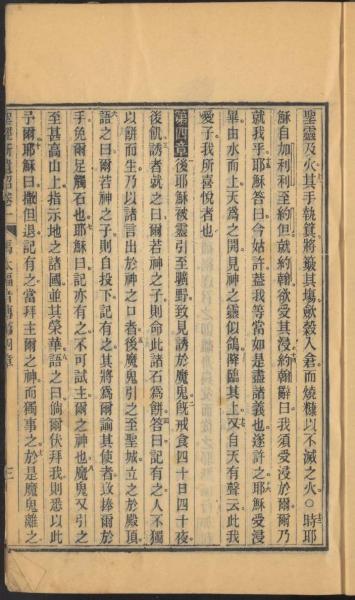 聖靈及火其手執箕將簸其塲歛穀入倉而燒糠以不滅之火○時耶
穌自加利利至約但就約翰欲受其浸約翰辭曰我須受浸於爾爾乃
就我乎耶穌答曰今姑許蓋我等當如是盡諸義也遂許之耶穌受浸
畢由水而上天爲之開見神之靈似鴿降臨其上又自天有聲云此我
愛子我所喜悅者也
第四章後耶穌被靈引至曠野致見誘於魔鬼旣戒食四十日四十夜
後飢誘者就之曰爾若神之子則命此諸石爲餅答曰記有之人不獨
以餅而生乃以諸言出於神之口者後魔鬼引之至聖城立之於殿頂
語之曰爾若神之子則自投下記有之其將爲爾諭其使者致捧爾於
手免爾足觸石也耶穌曰記亦有之不可試主爾之神也魔鬼又引之
至甚高山上指示地之諸國並其榮華語之曰倘爾伏拜我則悉以此
予爾耶穌曰撒但退記有之當拜主爾之神而獨事之於是魔鬼離之
聖經新遺詔卷一 馬太福音傳第四章 三